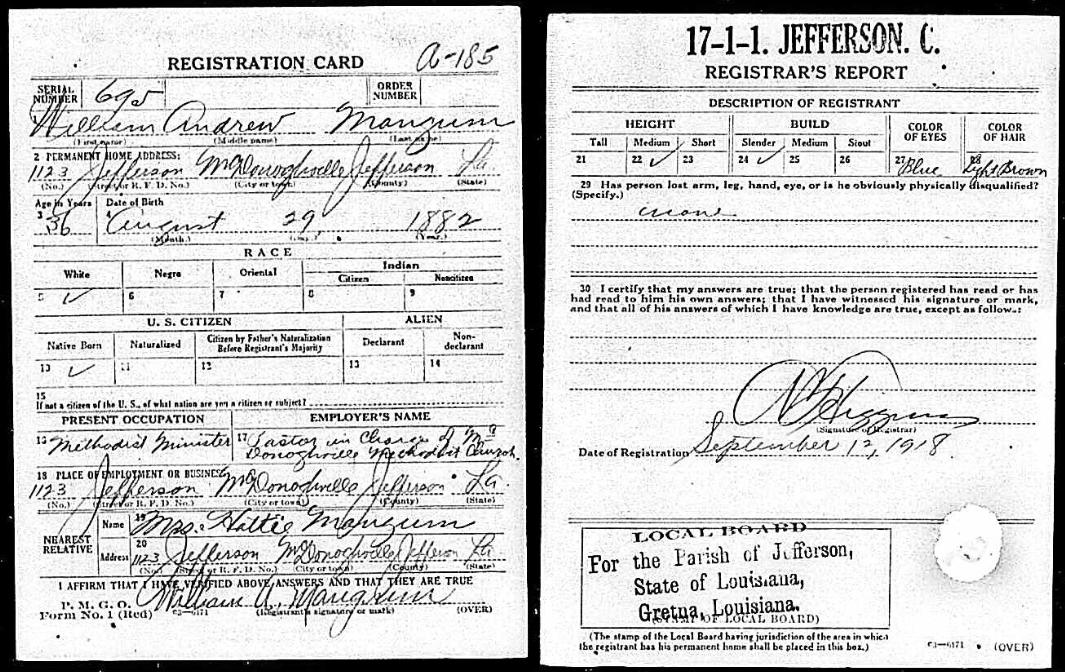 REGISTRATION CARD A-185
SERIAL NUMBER 695 ORDER NUMBER
William Andrew Mangum
(First name) (Middle name) (Last name)
2 PERMANENT HOME ADDRESS:
1123 Jefferson McDonoghville Jefferson La
(No.) (Street or R. F. D. No.) (City or town) (County) (State)
Age in Years Date of Birth
3 36 4 August 29, 1882
(Month.) (Day.) (Year.)
RACE
White Negro Oriental Indian
Citizen Noncitizen
5 ✓ 6 7 8 9
U. S. CITIZEN ALIEN
Native Born Naturalized Citizen by Father's Naturalization Before Registrant's Majority Declarant Non-declarant
10 ✓ 11 12 13 14
15
If not a citizen of the U. S., of what nation are you a citizen or subject?
PRESENT OCCUPATION EMPLOYER'S NAME
16 Methodist Minister 17 Pastor in Charge of Mc
Donoghville Methodist Church.
18 PLACE OF EMPLOYMENT OR BUSINESS:
1123 Jefferson McDonoghville Jefferson La.
(No.) (Street or R. F. D. No.) (City or town) (County) (State)
NEAREST RELATIVE Name 19 Mrs. Hattie Mangum
Address 20 1123 Jefferson McDonoghville Jefferson La
(No.) (Street or R. F. D. No.) (City or town) (County) (State)
I AFFIRM THAT I HAVE VERIFIED ABOVE ANSWERS AND THAT THEY ARE TRUE
P. M. G. O.
Form No. 1 (Red) William A. Mangum
(Registrant's signature or mark) (OVER)
17-1-1. JEFFERSON. C.
REGISTRAR'S REPORT
DESCRIPTION OF REGISTRANT
HEIGHT BUILD COLOR OF EYES COLOR OF HAIR
Tall Medium Short Slender Medium Stout
21 22 ✓ 23 24 ✓ 25 26 27 Blue 28 Light Brown
29 Has person lost arm, leg, hand, eye, or is he obviously physically disqualified?
(Specify.)
none
30 I certify that my answers are true; that the person registered has read or has
had read to him his own answers; that I have witnessed his signature or mark,
and that all of his answers of which I have knowledge are true, except as follows:
(Signature of Registrar)
Date of Registration September 12, 1918
LOCAL BOARD
For the Parish of Jefferson,
State of Louisiana,
Gretna, Louisiana.
(STAMP OF LOCAL BOARD)
(The stamp of the Local Board having jurisdiction of the area in which
the registrant has his permanent home shall be placed in this box.)
(OVER)